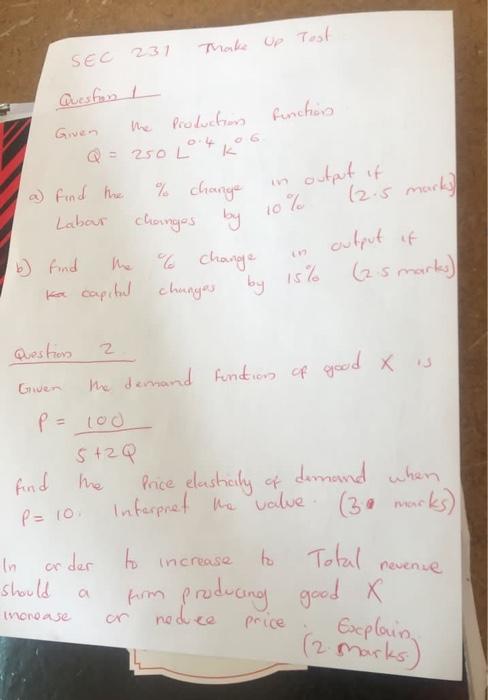 SEC 231 Make Up Test
Question 1
Given the Production function
Q = 250 L^0.4 K^0.6
a) Find the % change in output if
Labour changes by 10% (2.5 marks)
b) Find the % change in output if
capital changes by 15% (2.5 marks)
Question 2
Given the demand function of good X is
P = 100
5+2Q
find the Price elasticity of demand when
P= 10. Interpret the value. (3 marks)
In order to increase to Total revenue
should a firm producing good X
increase or reduce price. Explain.
(2 marks)